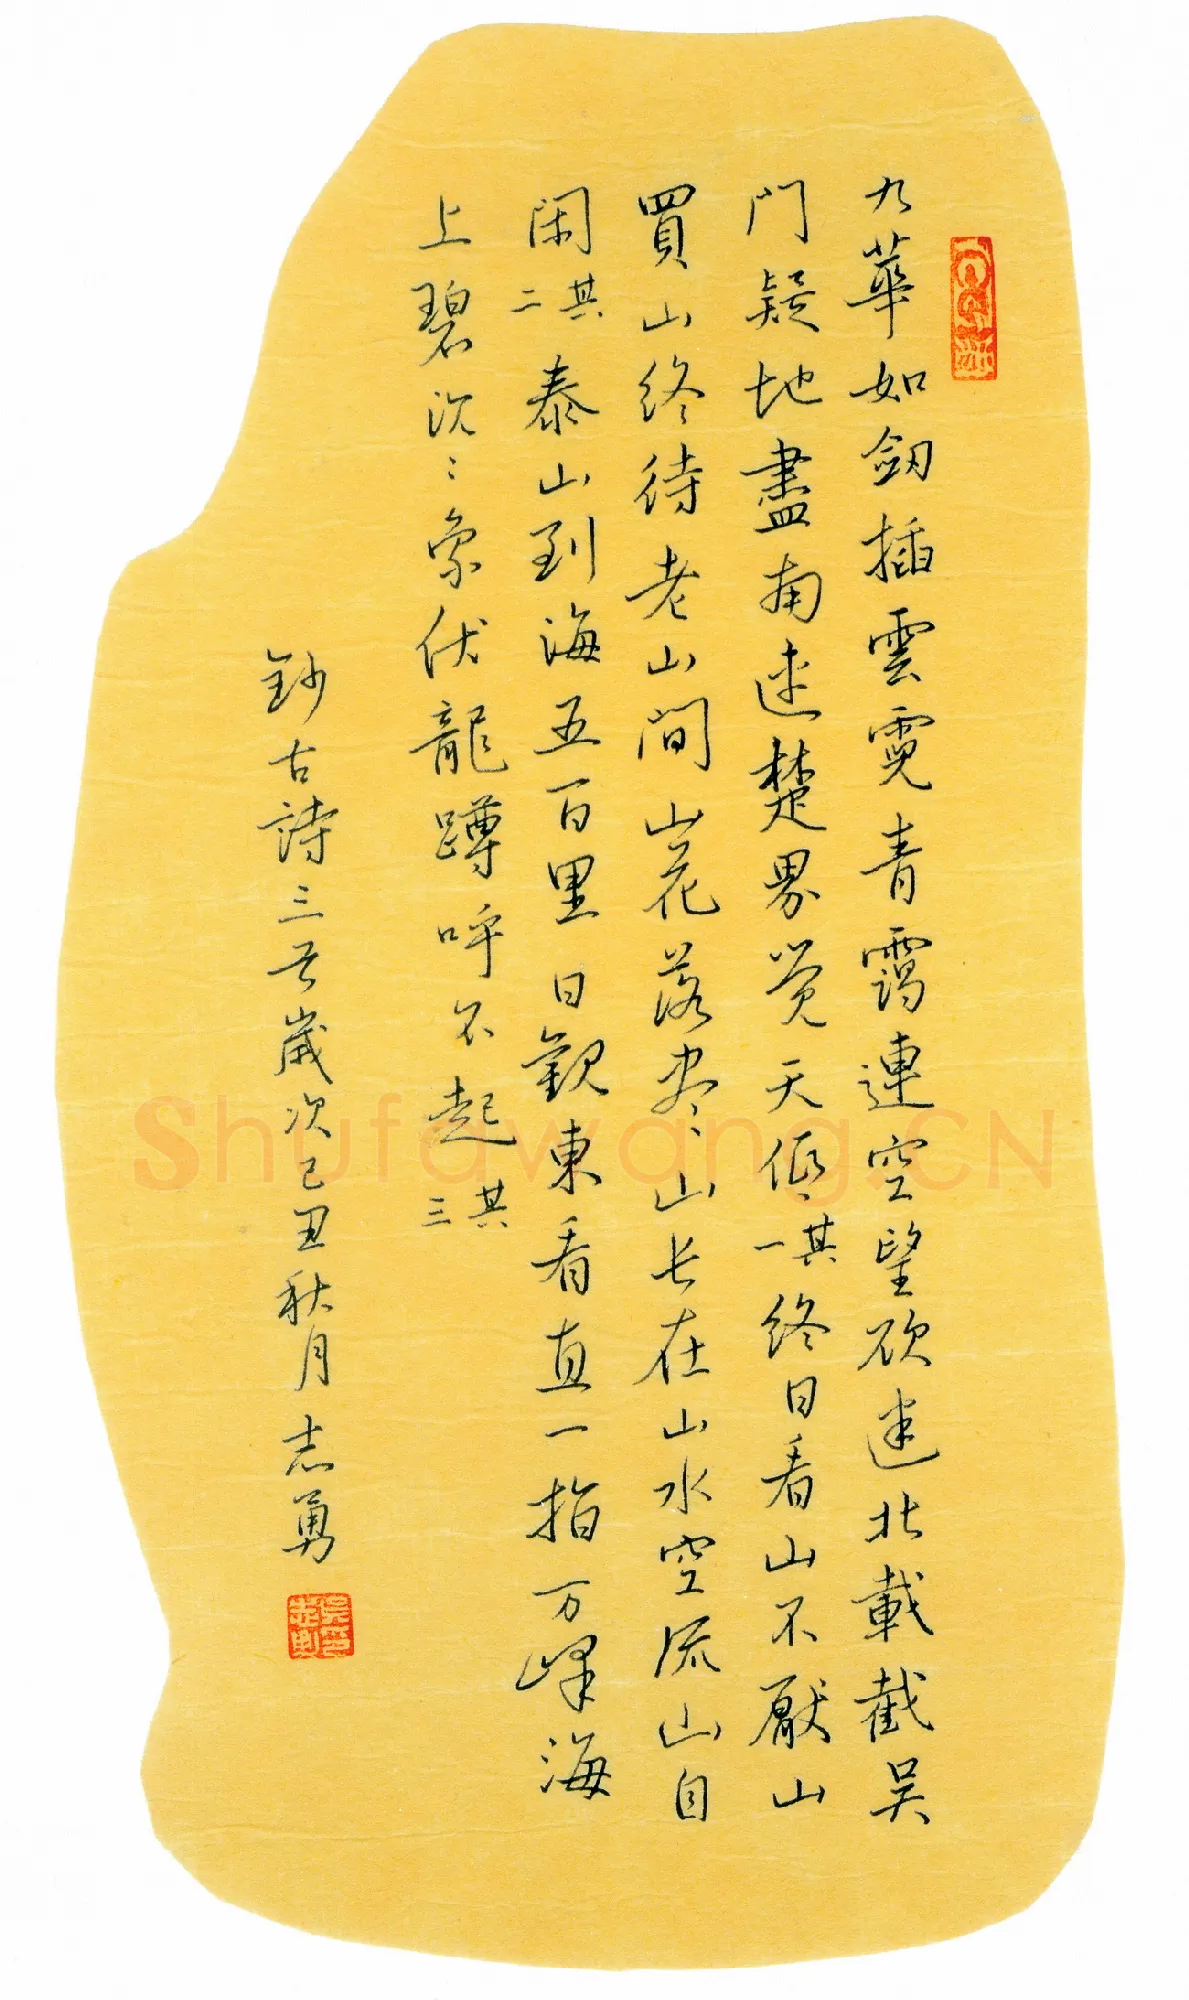 九華如劔插雲霓青靄連空望欲迷北截吳
門疑地盡南連楚界覺天低其一終日看山不厭山
買山終待老山間山花落盡山長在山水空流山自
閑其二泰山到海五百里日觀東看直一指万峰海
上碧沉〻象伏龍蹲呼不起其三
鈔古詩三首歲次己丑秋月志勇
Shufawang.CN